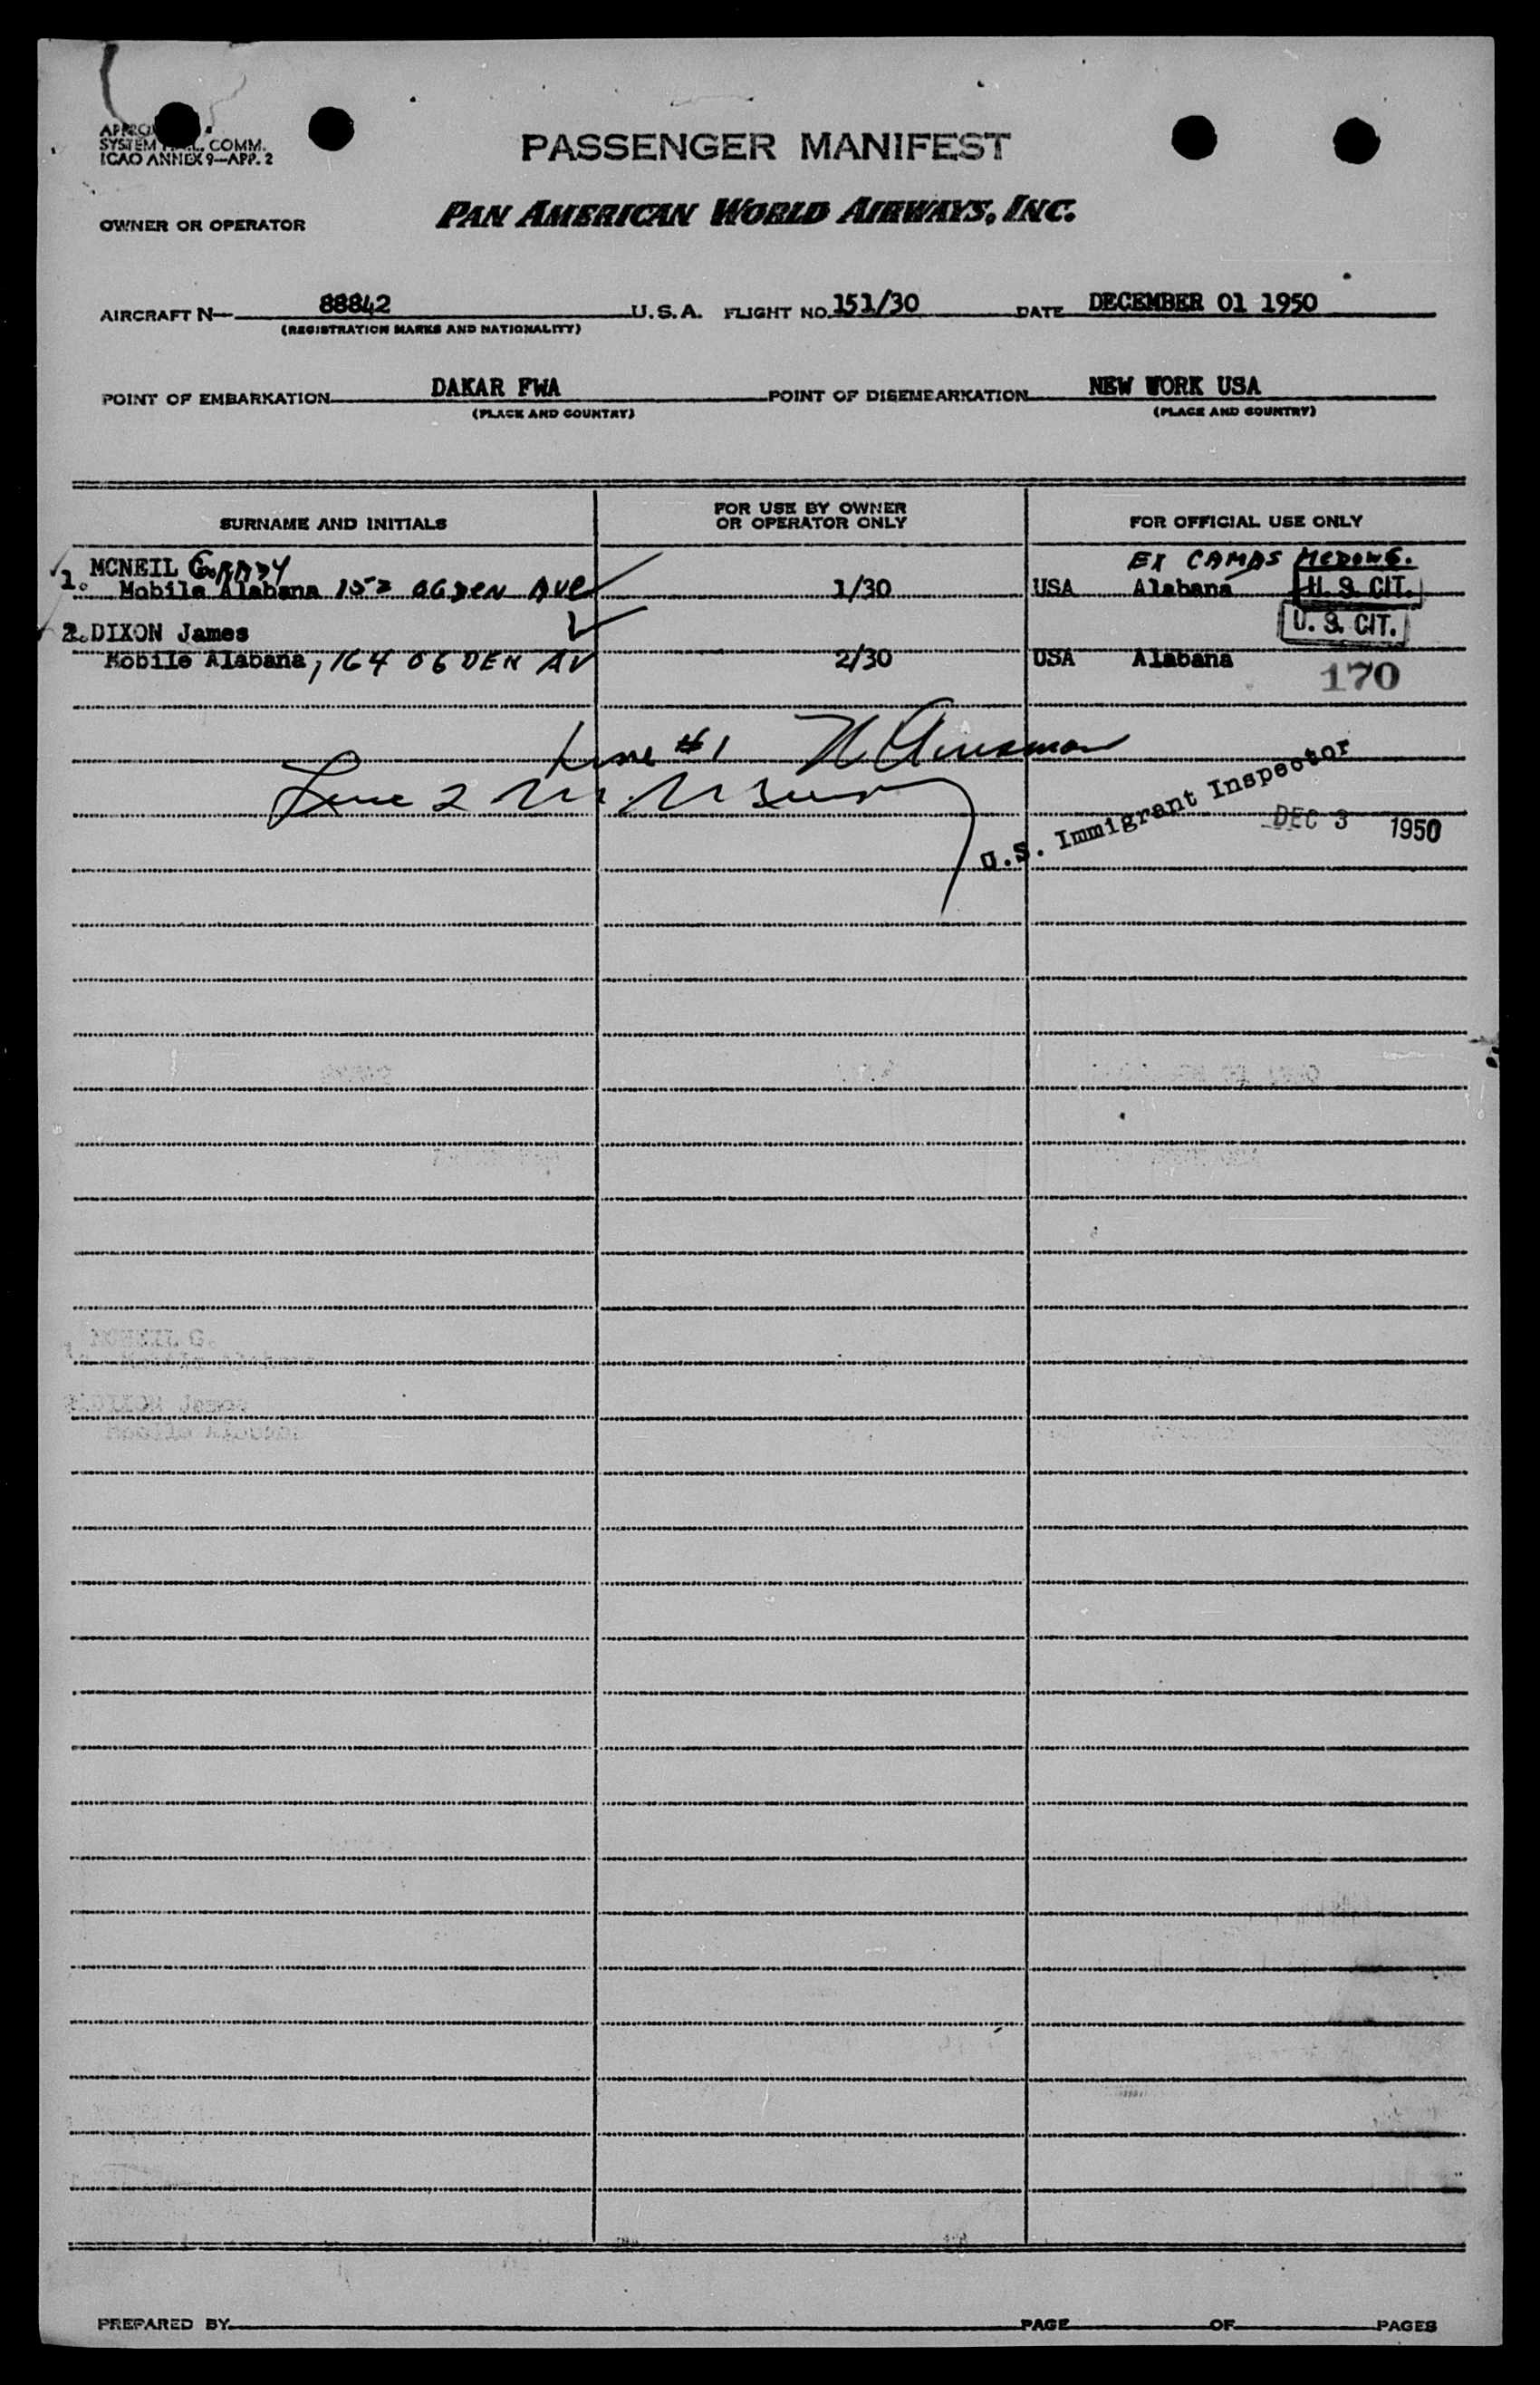 SYSTEM COMM.
ICAO ANNEX 9—APP. 2
PASSENGER MANIFEST
OWNER OR OPERATOR
PAN AMERICAN WORLD AIRWAYS, INC.
AIRCRAFT N— 88842 U.S.A. FLIGHT NO. 151/30 DATE DECEMBER 01 1950
(REGISTRATION MARKS AND NATIONALITY)
POINT OF EMBARKATION DAKAR FWA POINT OF DISEMBARKATION NEW YORK USA
(PLACE AND COUNTRY) (PLACE AND COUNTRY)
SURNAME AND INITIALS
FOR USE BY OWNER
OR OPERATOR ONLY
FOR OFFICIAL USE ONLY
MCNEIL GRADY EX CAMAS MEDOWS.
1. Mobile Alabana 152 OGDEN AVE 1/30 USA Alabana U. S. CIT.
2. DIXON James U. S. CIT.
Mobile Alabana, 164 OGDEN AV 2/30 USA Alabana
170
Line #1
Line 2
U.S. Immigrant Inspector
DEC 3 1950
MCNEIL G.
DIXON James
Mobile Alabana
PREPARED BY PAGE OF PAGES